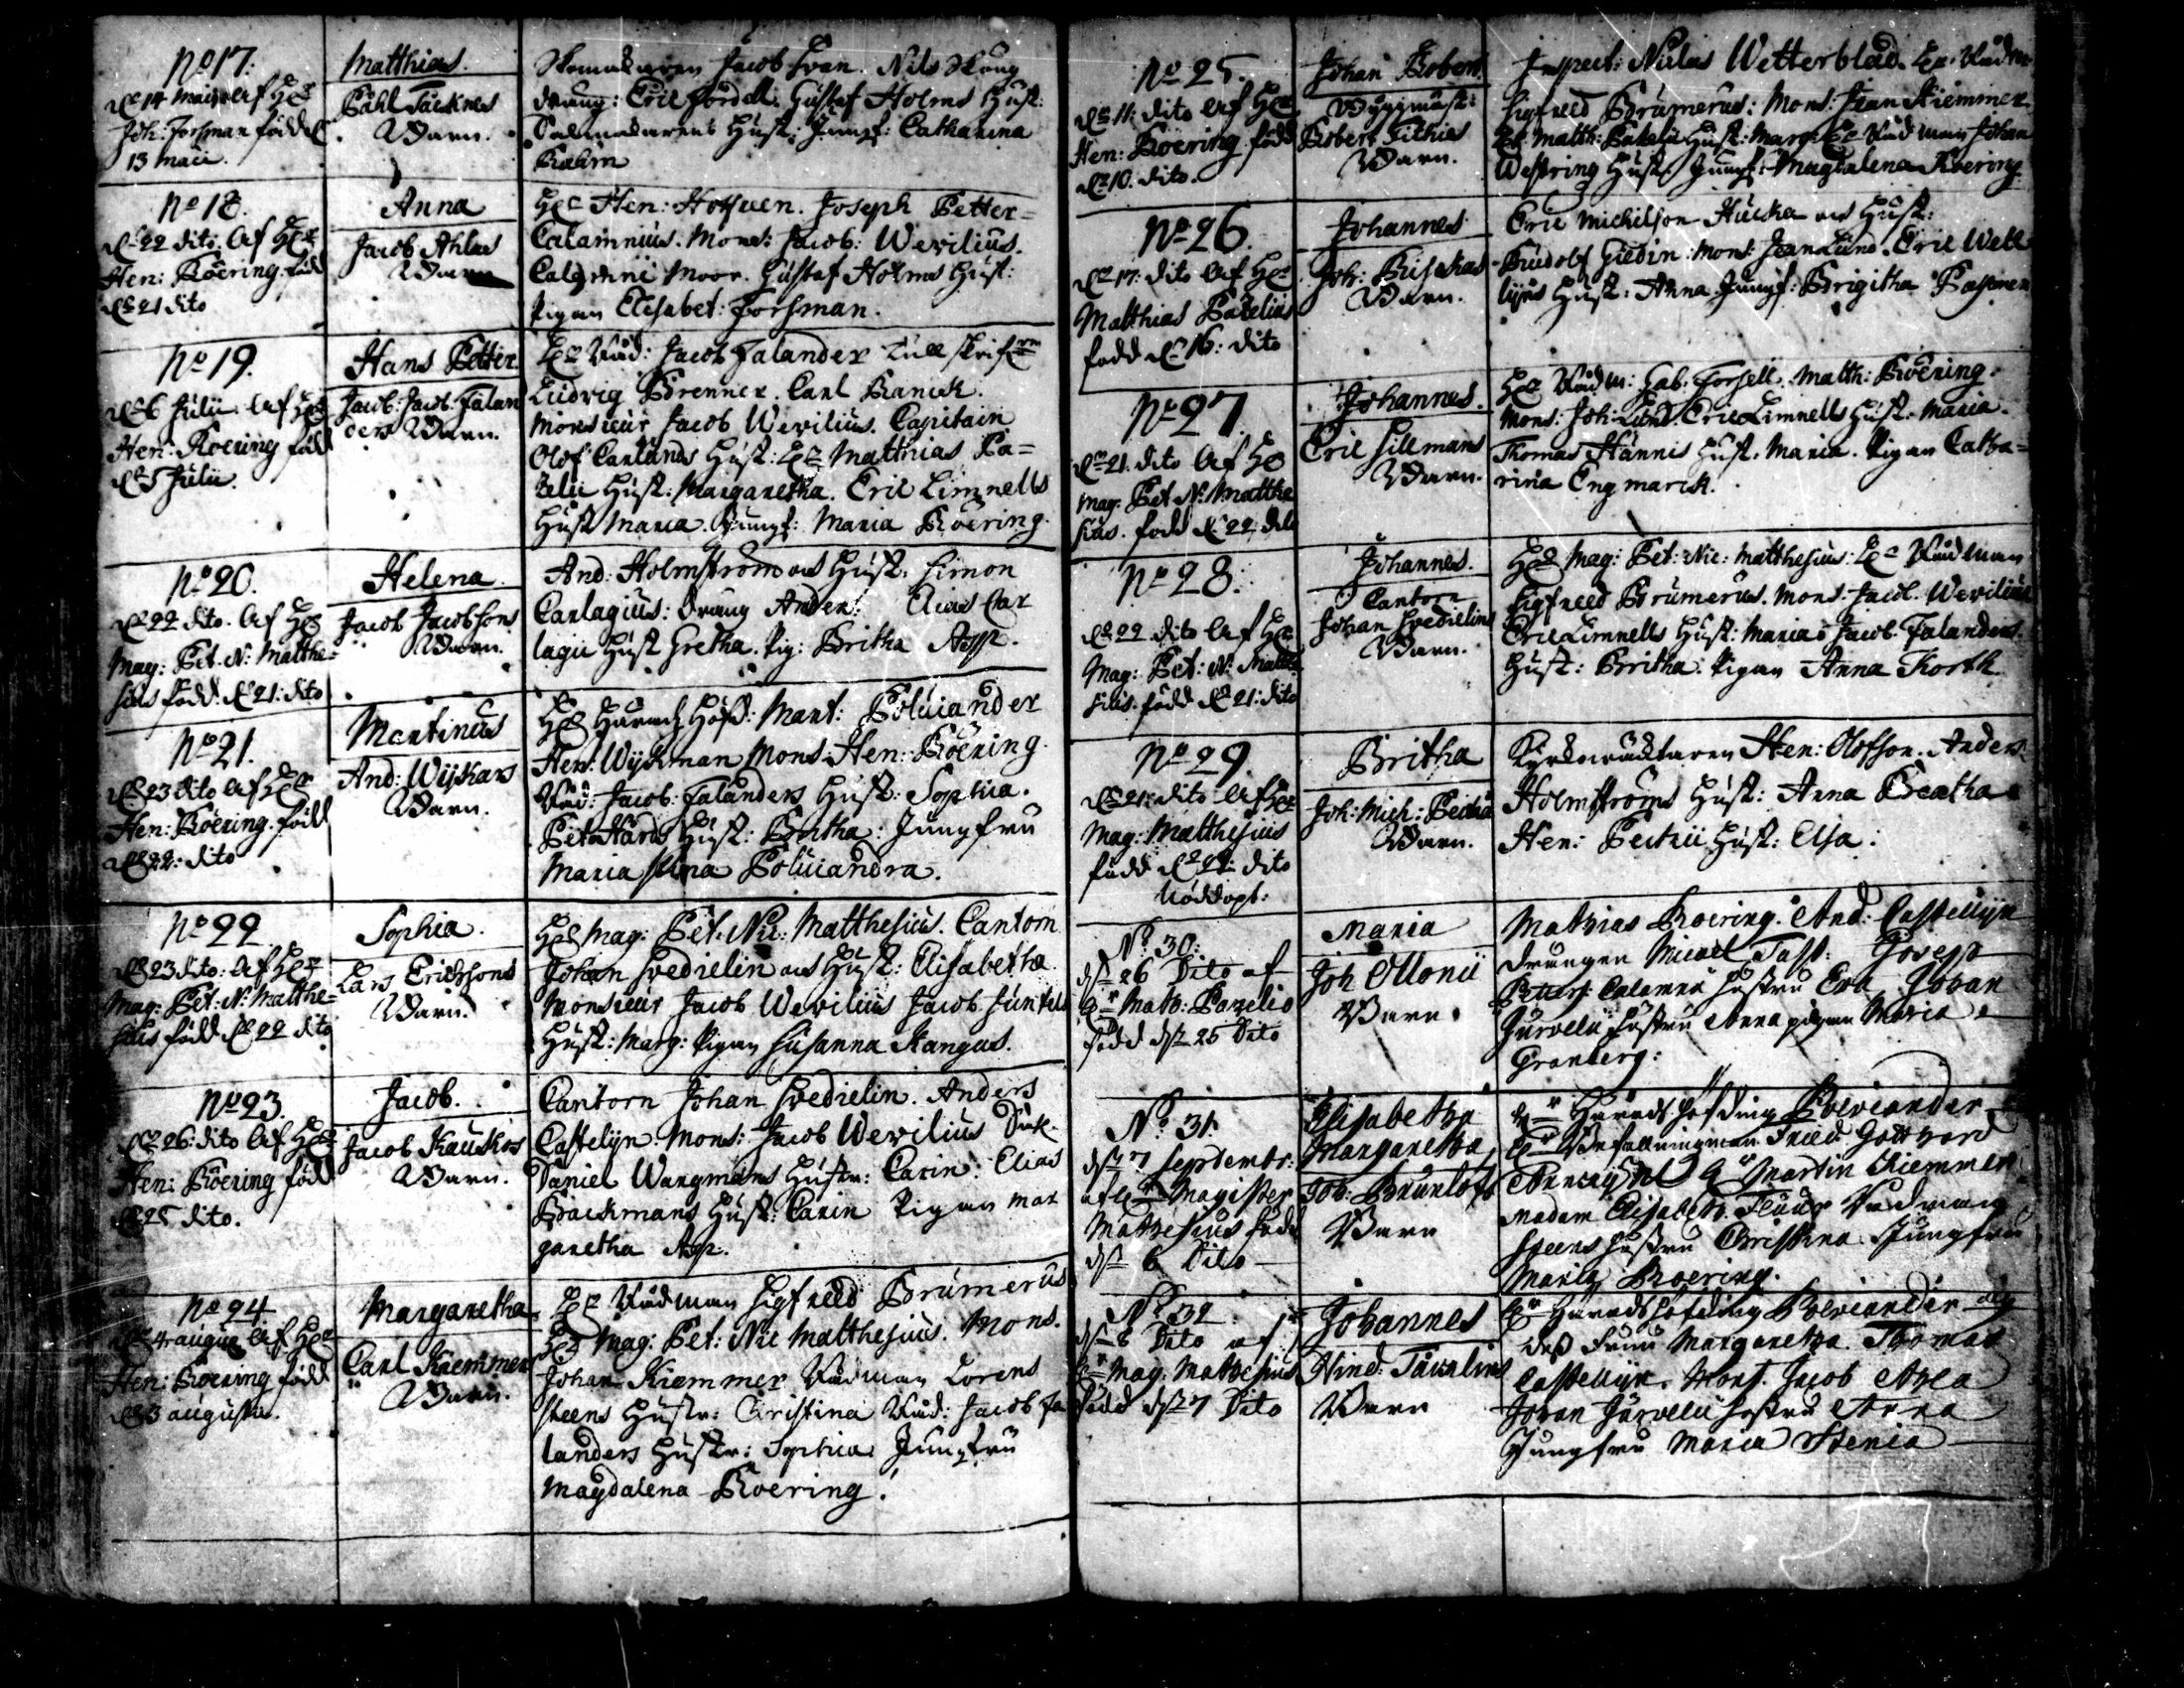 No 17.
d. 14 Maij af Hr
Joh: Forsman född d.
13 Maii.
Matthias.
Påhl Täcknes
Barn.
Skomakaren Jacob Sven. Nils Skoug
dräng: Eric Fördell. Gustaf Holms Hust:
Salmakarens Hust: Jungf: Catharina
Rahm
No 18.
d. 22 dito. af Hr
Hen: Roering född
d. 21 dito
Anna
Jacob Ahlas
Barn
Hr Hen: Hoffren. Joseph Petter=
Calamnius. Mons: Jacob: Wevilius.
Calamnii Moor. Gustaf Holms Hust:
Pigan Elisabet: Forsman.
No 19.
d. 6 Julii. af Hr
Hen: Roering född
d. 5 Julii.
Hans Petter
Jacob: Jacob: Falan
ders Barn.
Hr Råd: Jacob Falander Tullskrifven
Ludvig Brenner. Carl Ranck.
Monsieur Jacob Wevilius. Capitain
Olof Carlands Hust: Hr Matthias Pa=
zelii Hust: Margaretha. Eric Limnells
Hust Maria. Jungf: Maria Roering.
No 20.
d. 22 dito. af Hr
Mag: Pet. N: Matthe=
sius född. d. 21: dito
Helena
Jacob Jacobsons
Barn.
And: Holmström ms Hust: Simon
Carlagius: dräng Anders: Elias Car
lagii Hust Gretha. Pig: Britha
No 21.
d. 23 dito af Hr
Hen: Roering. född
d. 22: dito
Martinus
And: Wijkars
Barn.
Hr Häradz Höfd: Mart: Polviander
Hen: Wijkman Mons. Hen: Roering.
Råd: Jacob: Falanders Hust: Sophia.
Pet Hårds Hust: Britha: Jungfru
Maria Polviandra.
No 22
d. 23 dito: af Hr
Mag: Pet: N: Matthe=
sius född d. 22 dito
Sophia.
Lars Erichsons
Barn.
Hr Mag: Pet. Nic: Matthesius. Cantorn
Johan Svedielin ms Hust: Elisabetha
Monsieur Jacob Wevilius Jacob
Hust: Marg: Pigan Susanna Kangas.
No 23.
d. 26: dito af Hr
Hen: Roering född
d. 25 dito.
Jacob.
Jacob Kauskos
Barn.
Cantorn Johan Svedielin. Anders
Castelijn. Mons: Jacob Wevilius
Daniel Wargmans Hustr: Carin: Elias
Backmans Hust: Carin Pigan Mar
garetha
No 24.
d. 4 augusti af Hr
Hen: Roering född
d. 3 augusti.
Margaretha
Carl Kiemmer
Barn.
Hr Rådman Sigfreed Brumerus
Hr Mag: Pet: Nic Matthesius. Mons.
Johan Kiemmer Rådman Lorens
Steens Hustr: Christina Råd: Jacob Fa
landers Hustr: Sophia Jungfru
Magdalena Roering.
No 25.
d. 11: dito af Hr
Hen: Roering född
d. 10. dito.
Johan Robert
Byggmäst:
Robert Fithies
Barn.
Inspect: Niclas Wetterblad. Hr. Rådm
Sigfreed Brumerus: Mons: Jean Kiemmer.
Hr. Matth: Pazelii Hust: Marg: Hr Rådman Johan
Westring Hust. Jungf: Magdalena Roering
No 26.
d. 17: dito af Hr
Matthias Pazelius
född d. 16: dito
Johannes
Joh: Rijskas
Barn.
Eric Michilson Huska ms Hust:
Rudolf Giedin: Mons: Jean Lund. Eric Well
lijns Hust: Anna Jungf: Brigitha
No 27.
d. 21. dito af Hr
Mag. Pet N: Matthe
sius. född d. 22: dito
Johannes.
Eric Sillmans
Barn.
Hr Rådm: Gab. Forsell. Matth: Roering.
Mons: Joh: Lund. Eric Limnells Hust. Maria.
Thomas Hannis Hust. Maria. Pigan Catha=
rina Engmarck.
No 28:
d. 22 dito af Hr
Mag: Pet: N: Matthe
sius. född d. 21: dito
Johannes.
Cantorn
Johan Svedielins
Barn.
Hr Mag: Pet: Nic: Matthesius. Hr Rådman
Sigfreed Brumerus. Mons: Jacob. Wevilius
Eric Limnells Hust: Maria Jacob. Falanders.
Hust: Britha: Pigan Anna Korth.
No 29.
d. 24: dito af Hr
Mag: Matthesius
född d. 24: dito
Nöddopt:
Britha
Joh: Mich: Peitzii
Barn.
Kyrkowächtaren Hen: Olofson. Anders
Holmströms Hust: Anna Beatha
Hen: Peitzii Hust: Elsa:
No 30:
dn 26 Dito af
Hr Math: Pazelio
född dn 25 Dito
Maria
Joh Ollonii
Barn
Mathias Roering. And: Castelijn
Drengen Micael Tast: Joseph
Petters: Calamnii hustru Eva Johan
Jurvelii hustru Anna pigan Maria
Granberg:
No 31
dn 7 Septembr:
af Hr Magister
Mathesius född
dn 6 Dito
Elisabetha
Margaretha
Joh: Brunlöfs
Barn
Hr Häradshöfding Polviander
Hr Befallningsman Fried. Gotthard
Martin Kiemmer
Madam Elisabeth Rådman
Steens hustru Christina Jungfru
Maria Roering.
No 32
dn 8 Dito af
Hr Mag: Mathesius
född dn 7 Dito
Johannes
Hind: Tavelins
Barn
Hr Häradshöfding Polviander och
dess Fruu Margaretha Thomas
Castelijn. Mons. Jacob Ahla
Johan Jurvelii hustru Anna
Jungfru Maria Stenia